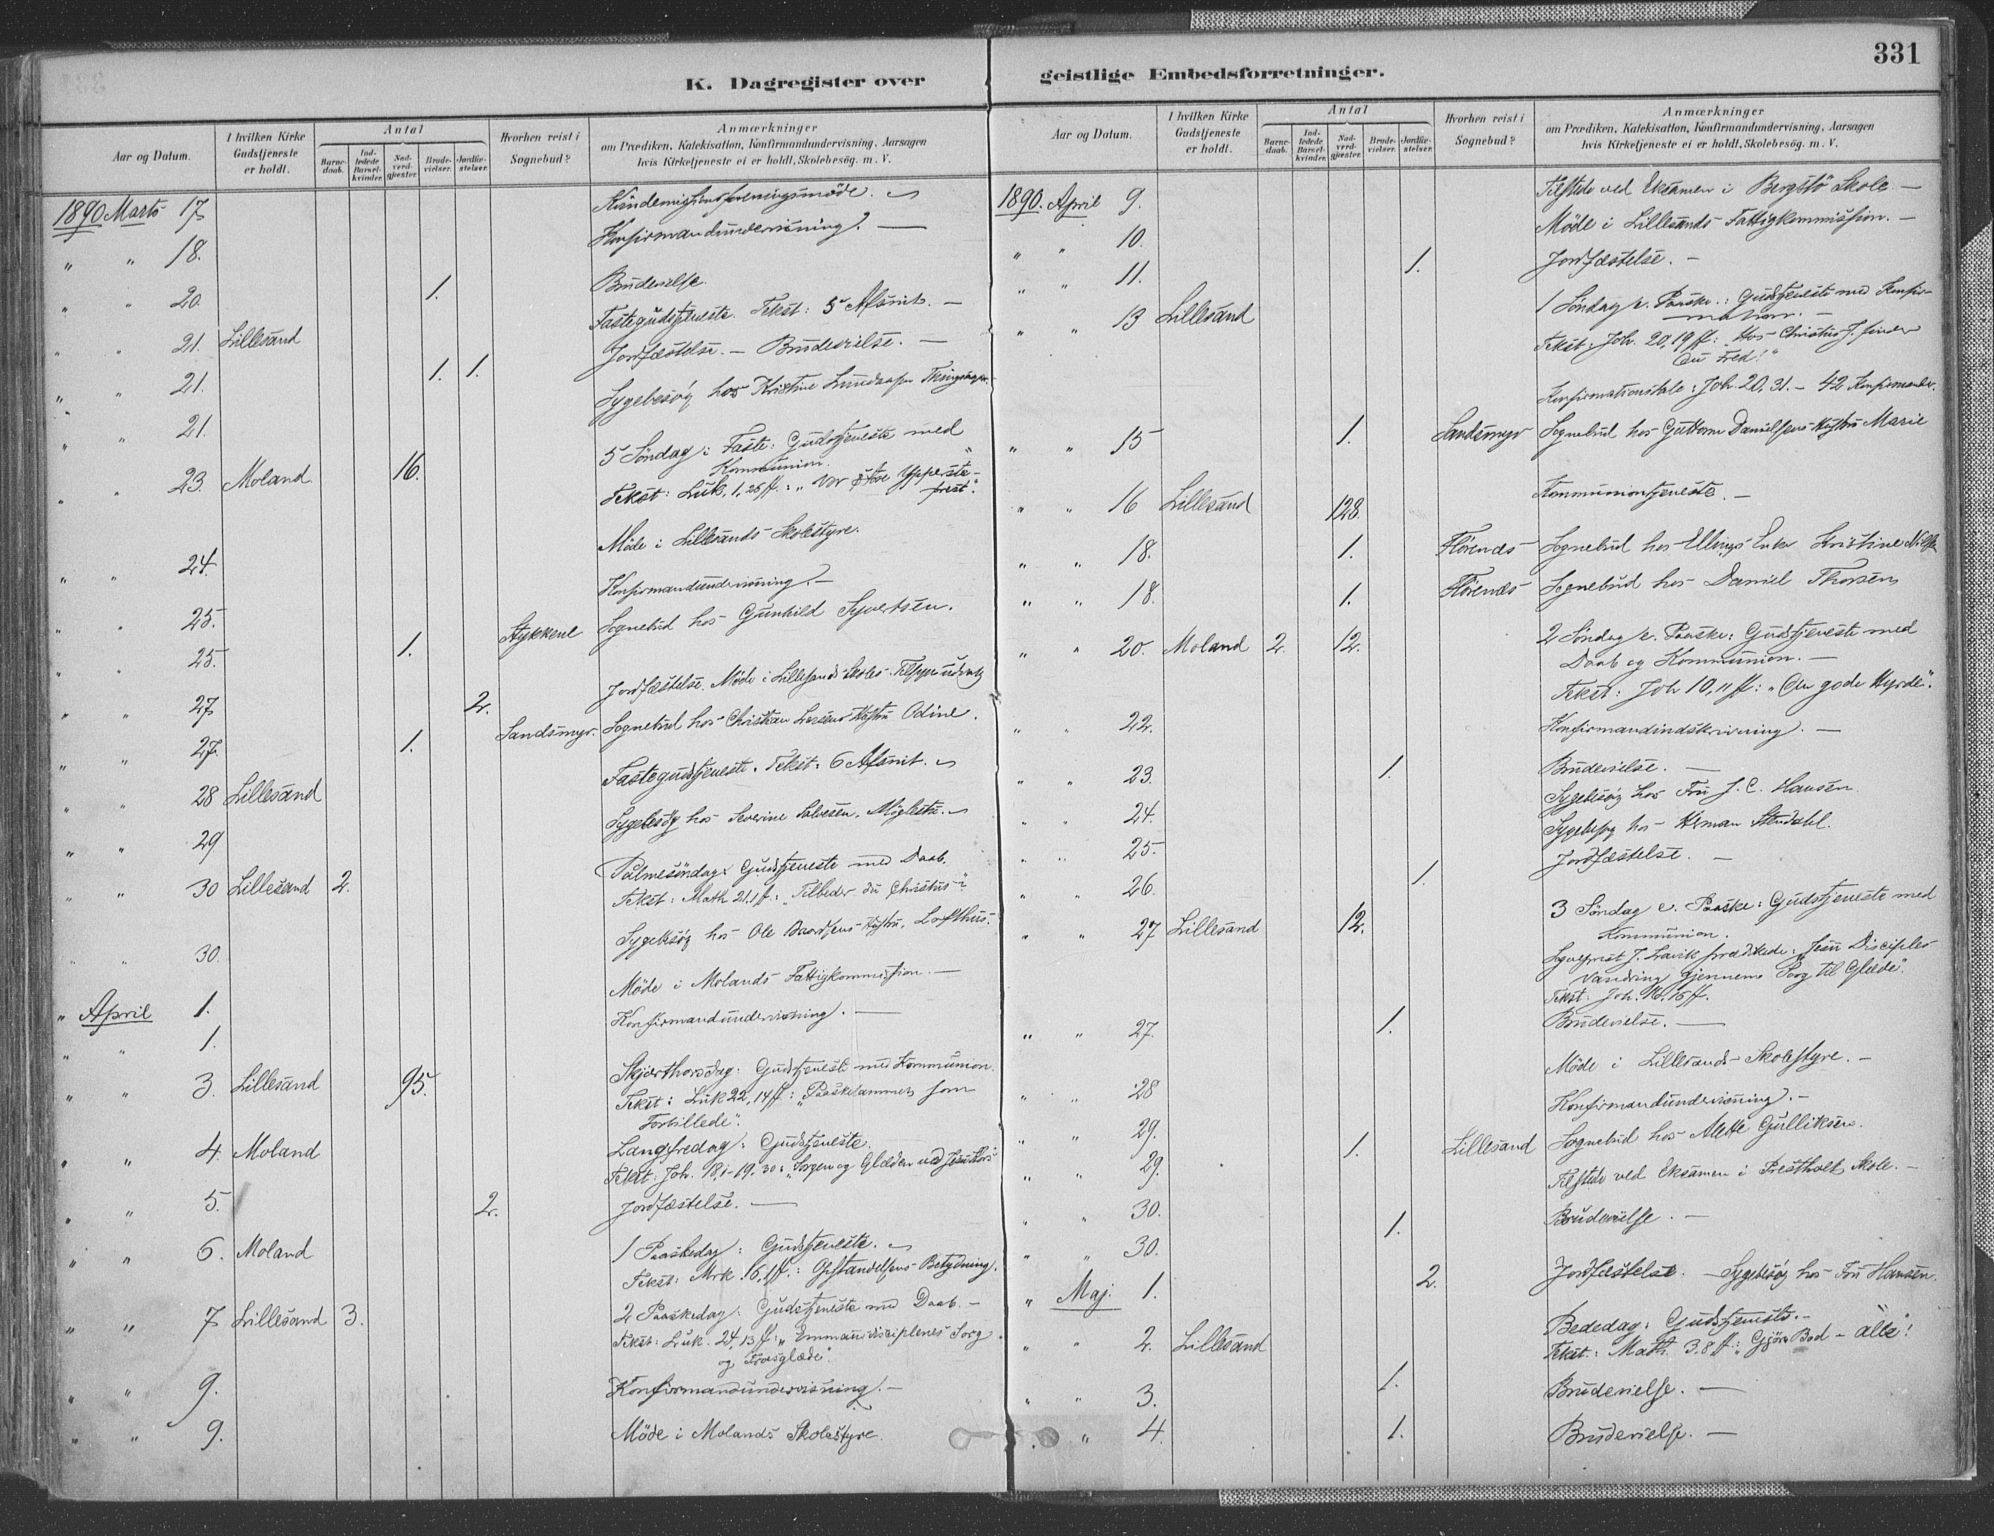 331
K. Dagregister over geistlige Embedsforretninger.
Aar og Datum.
I hvilken Kirke Gudstjeneste er holdt.
Antal
Barnedaab.
Indledede Barselkvinder.
Nadverdgjæster.
Brudevielser.
Jordfæstelser.
Hvorhen reist i Sognebud?
Anmærkninger
om Prædiken, Katekisation, Konfirmandundervisning, Aarsagen
hvis Kirketjeneste ei er holdt, Skolebesög. m. V.
1890 Marts 17
Konfirmandundervisning. —
" " 18.
" " 20. 1. Brudevielse.
" " 21. Lillesand Fastegudstjeneste. Tekst: 5 Afsnit. —
" " 21. 1. 1. Jordfæstelse. — Brudevielse. —
" " 21. Sygebesøg hos Kristine
" " 23. Moland 16. 5 Söndag i Faste: Gudstjeneste med
Kommunion.
Tekst: Luk. 1, 26 ff.: "Vor Ypperste-
prest".
" " 24. Möde i Lillesands Skolestyre.
" " 25. Konfirmandundervisning. —
" " 25. 1. Stykkene Sognebud hos Gunhild Syvertsen.
" " 27 2. Jordfæstelse. Möde i Lillesands Skoles Tilsynsudvalg
" " 27. 1. Sandsmyr. Sognebud hos Christian Hustru Odine.
" " 28 Lillesand Fastegudstjeneste. Tekst: 6 Afsnit.
" " 29 Sygebesøg hos Severine Salvesen,
" " 30 Lillesand 2. Palmesöndag: Gudstjeneste med Daab.
Tekst: Math 21,1 ff.: "Tilbeder du Christus"?
" " 30 Sygebesøg hos Ole Hustru, Lofthus.
" April 1. Möde i Molands Fattigkommission. —
" " 1. Konfirmandundervisning. —
" " 3. Lillesand 95. Skjærthorsdag: Gudstjeneste med Kommunion.
Tekst: Luk 22, 14 ff.: "Paaskelammet som
Forbillede".
" " 4. Moland Langfredag: Gudstjeneste.
Tekst: Joh. 18,1-19,30: "Sorgen og Glæden ved Jesu Kors"
" " 5. 2. Jordfæstelse. —
" " 6. Moland 1 Paaskedag: Gudstjeneste.
Tekst: Mrk. 16,1 ff.: Opstandelsens Betydning.
" " 7 Lillesand 3. 2 Paaskedag: Gudstjeneste med Daab. —
Tekst: Luk. 24,13 ff.: "Emmausdisciplenes Sorg
og
" " 9. Konfirmandundervisning. —
" " 9. Möde i Molands Skolestyre.
Aar og Datum.
I hvilken Kirke Gudstjeneste er holdt.
Antal
Barnedaab.
Indledede Barselkvinder.
Nadverdgjæster.
Brudevielser.
Jordfæstelser.
Hvorhen reist i Sognebud?
Anmærkninger
om Prædiken, Katekisation, Konfirmandundervisning, Aarsagen
hvis Kirketjeneste ei er holdt, Skolebesög. m. V.
1890. April 9. Tilstede ved Eksamen i Bergstö Skole —
" " 10. Möde i Lillesands Fattigkommission. —
" " 11. 1. Jordfæstelse. —
" " 13 Lillesand 1 Söndag e. Paaske: Gudstjeneste med Konfir-
mation. —
Tekst: Joh. 20,19 ff.: "Hos Christus J. finder
Du Fred!"
Konfirmationstale: Joh 20, 31. — 42 Konfirmander.
" " 15 1. Sandsmyr Sognebud hos Guttorm Danielsens Hustru Marie
" " 16 Lillesand 128. Kommuniontjeneste. —
" " 18. 1. Flörenæs Sognebud hos Ellings Enke Kristine
" " 18. 1. Flörenæs Sognebud hos Daniel Thorsen
" " 20. Moland 2. 12. 2 Söndag e. Paaske: Gudstjeneste med
Daab og Kommunion. —
Tekst: Joh 10, 11 ff.: "Den gode Hyrde".
" " 22. Konfirmandindskrivning. —
" " 23. 1. Brudevielse. —
" " 24. Sygebesøg hos Fru J. C. Hansen.
" " 25. Sygebesøg hos Herman Stendahl.
" " 26. 1. Jordfæstelse. —
" " 27 Lillesand 12. 3 Söndag e. Paaske: Gudstjeneste med
Kommunion.
Sogneprest J. Lavik prædikede: "Jesu Disciples
Vandring gjennem Sorg til Glæde".
Tekst: Joh. 16, 16 ff.
" " 27. 1. Brudevielse. —
" " 28 Möde i Lillesands Skolestyre. —
" " 29. Konfirmandundervisning. —
" " 29. 1. Lillesand Sognebud hos Alette Gulliksen.
" " 30. Tilstede ved Eksamen i Prestholt Skole. —
" " 30. 1. Brudevielse. —
" Maj 1. 2. Jordfæstelse. — Sygebesøg hos Fru Hansen.
" " 2. Lillesand Bededag: Gudstjeneste. —
Tekst: Math. 3.8 ff.: "Gjörer Bod — alle!
" " 3. 1. Brudevielse. —
" " 4. 1. Brudevielse. —